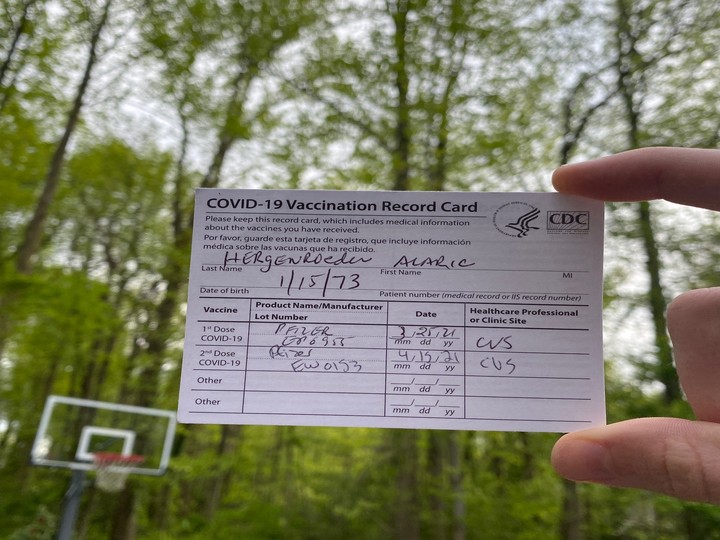 COVID-19 Vaccination Record Card
CDC
Please keep this record card, which includes medical information
about the vaccines you have received.
Por favor, guarde esta tarjeta de registro, que incluye información
médica sobre las vacunas que ha recibido.
HERgENRoeder ALARIC
Last Name First Name MI
1/15/73
Date of birth Patient number (medical record or IIS record number)
Vaccine Product Name/Manufacturer Date Healthcare Professional
Lot Number or Clinic Site
1st Dose PFIZER 3/25/21 CVS
COVID-19 mm dd yy
2nd Dose Pfizer 4/15/21 CVS
COVID-19 EW0153 mm dd yy
Other mm dd yy
Other mm dd yy